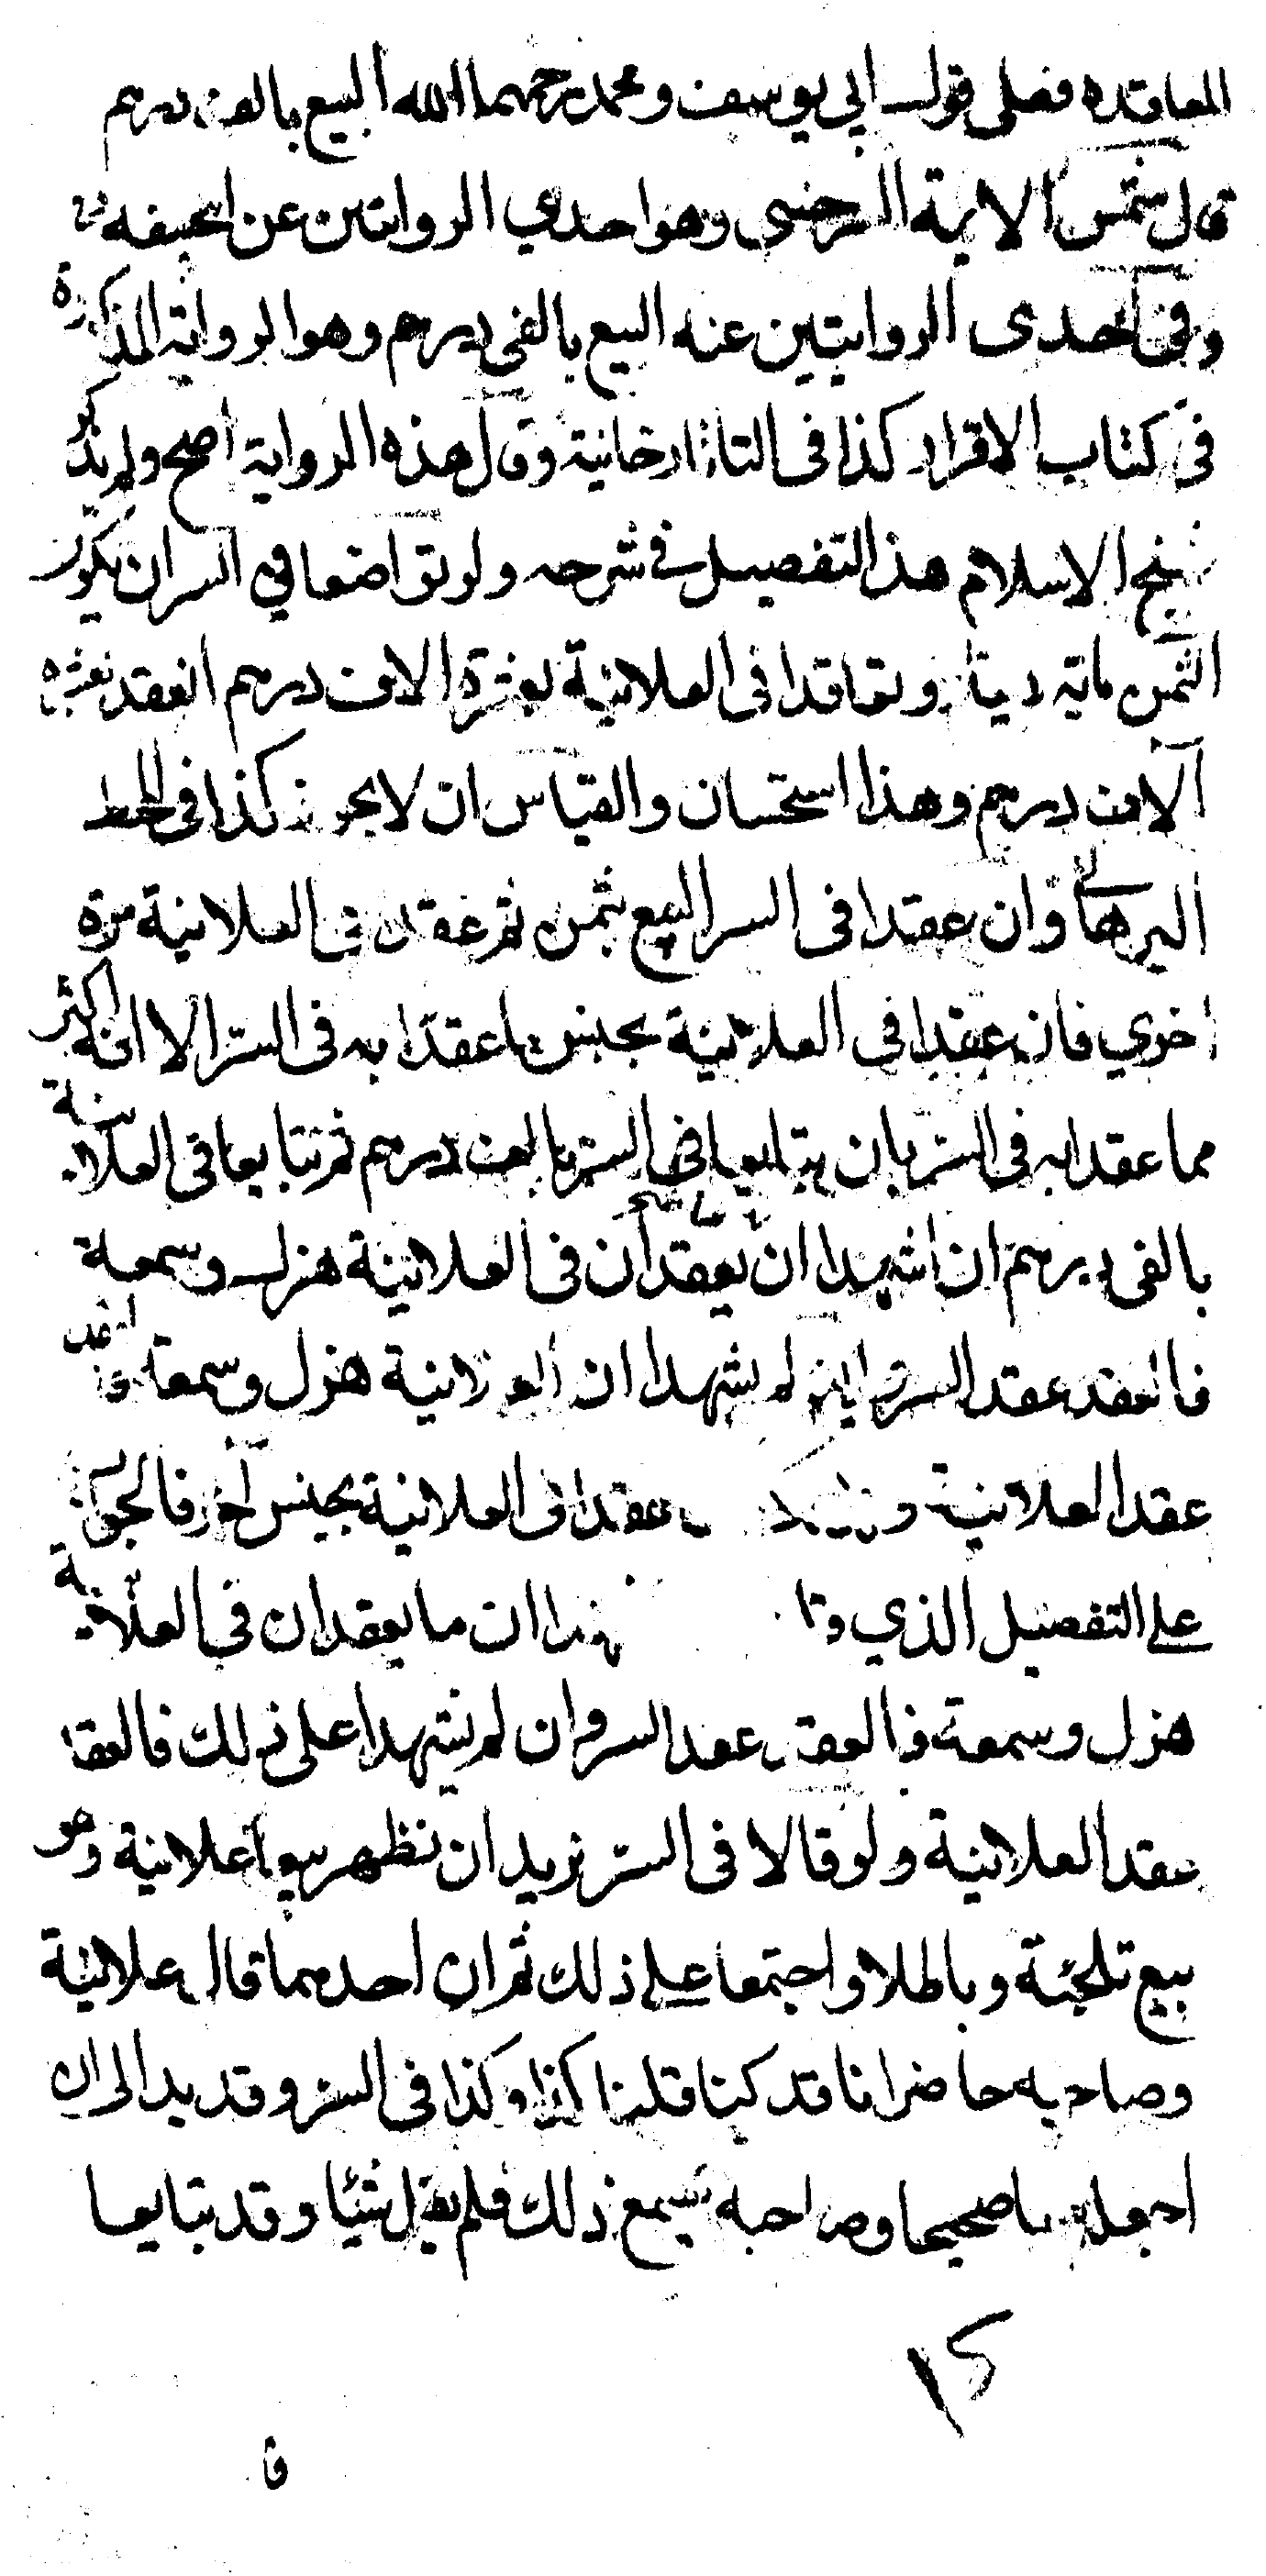 المعاقدة فعلى قول ابي يوسف ومحمد رحمهما الله البيع بالف درهم
قال شمس الايمة السرخسي وهو احدي الروايتين عن ابيحنيفه
وفي احدى الروايتين عنه البيع بالفى درهم وهو الرواية المذكورة
فى كتاب الاقرار كذا فى التاتارخانية وقال هذه الرواية اصح ولم يذكر
شيخ الاسلام هذا التفصيل في شرحه ولو تواضعا في السر ان يكون
الثمن ماية دينار وتعاقدا فى العلانية بعشرة الاف درهم انعقد بعشرة
آلاف درهم وهذا استحسان والقياس ان لا يجوز كذا فى المحيط
البرهاني وان عقدا فى السر البيع بثمن ثم عقدا فى العلانية مرة
اخري فان عقدا فى العلانية بجنس ما عقدا به فى السر الا انه اكثر
مما عقدا به فى السر بان يتبايعا فى السر بالف درهم ثم تبايعا فى العلانية
بالفى درهم ان اشهدا ان ما يعقدان فى العلانية هزل وسمعة
فالعقد عقد السر وان لم يشهدا ان العلانية هزل وسمعة فالعقد
عقد العلانية و عقدا فى العلانية بجنس آخر فالجواب
على التفصيل الذي ان ما يعقدان في العلانية
هزل وسمعة فالعقد عقد السر وان لم يشهدا على ذلك فالعقد
عقد العلانية ولو قالا فى السر نريد ان نظهر بيعا علانية وهو
بيع تلجئة وباطلا واجتمعا على ذلك ثم ان احدهما قال علانية
وصاحبه حاضر انا قد كنا قلنا كذا وكذا فى السر وقد بدا لى ان
اجعله بيعا صحيحا وصاحبه يسمع ذلك فلم يقل شيئا وقد تبايعا